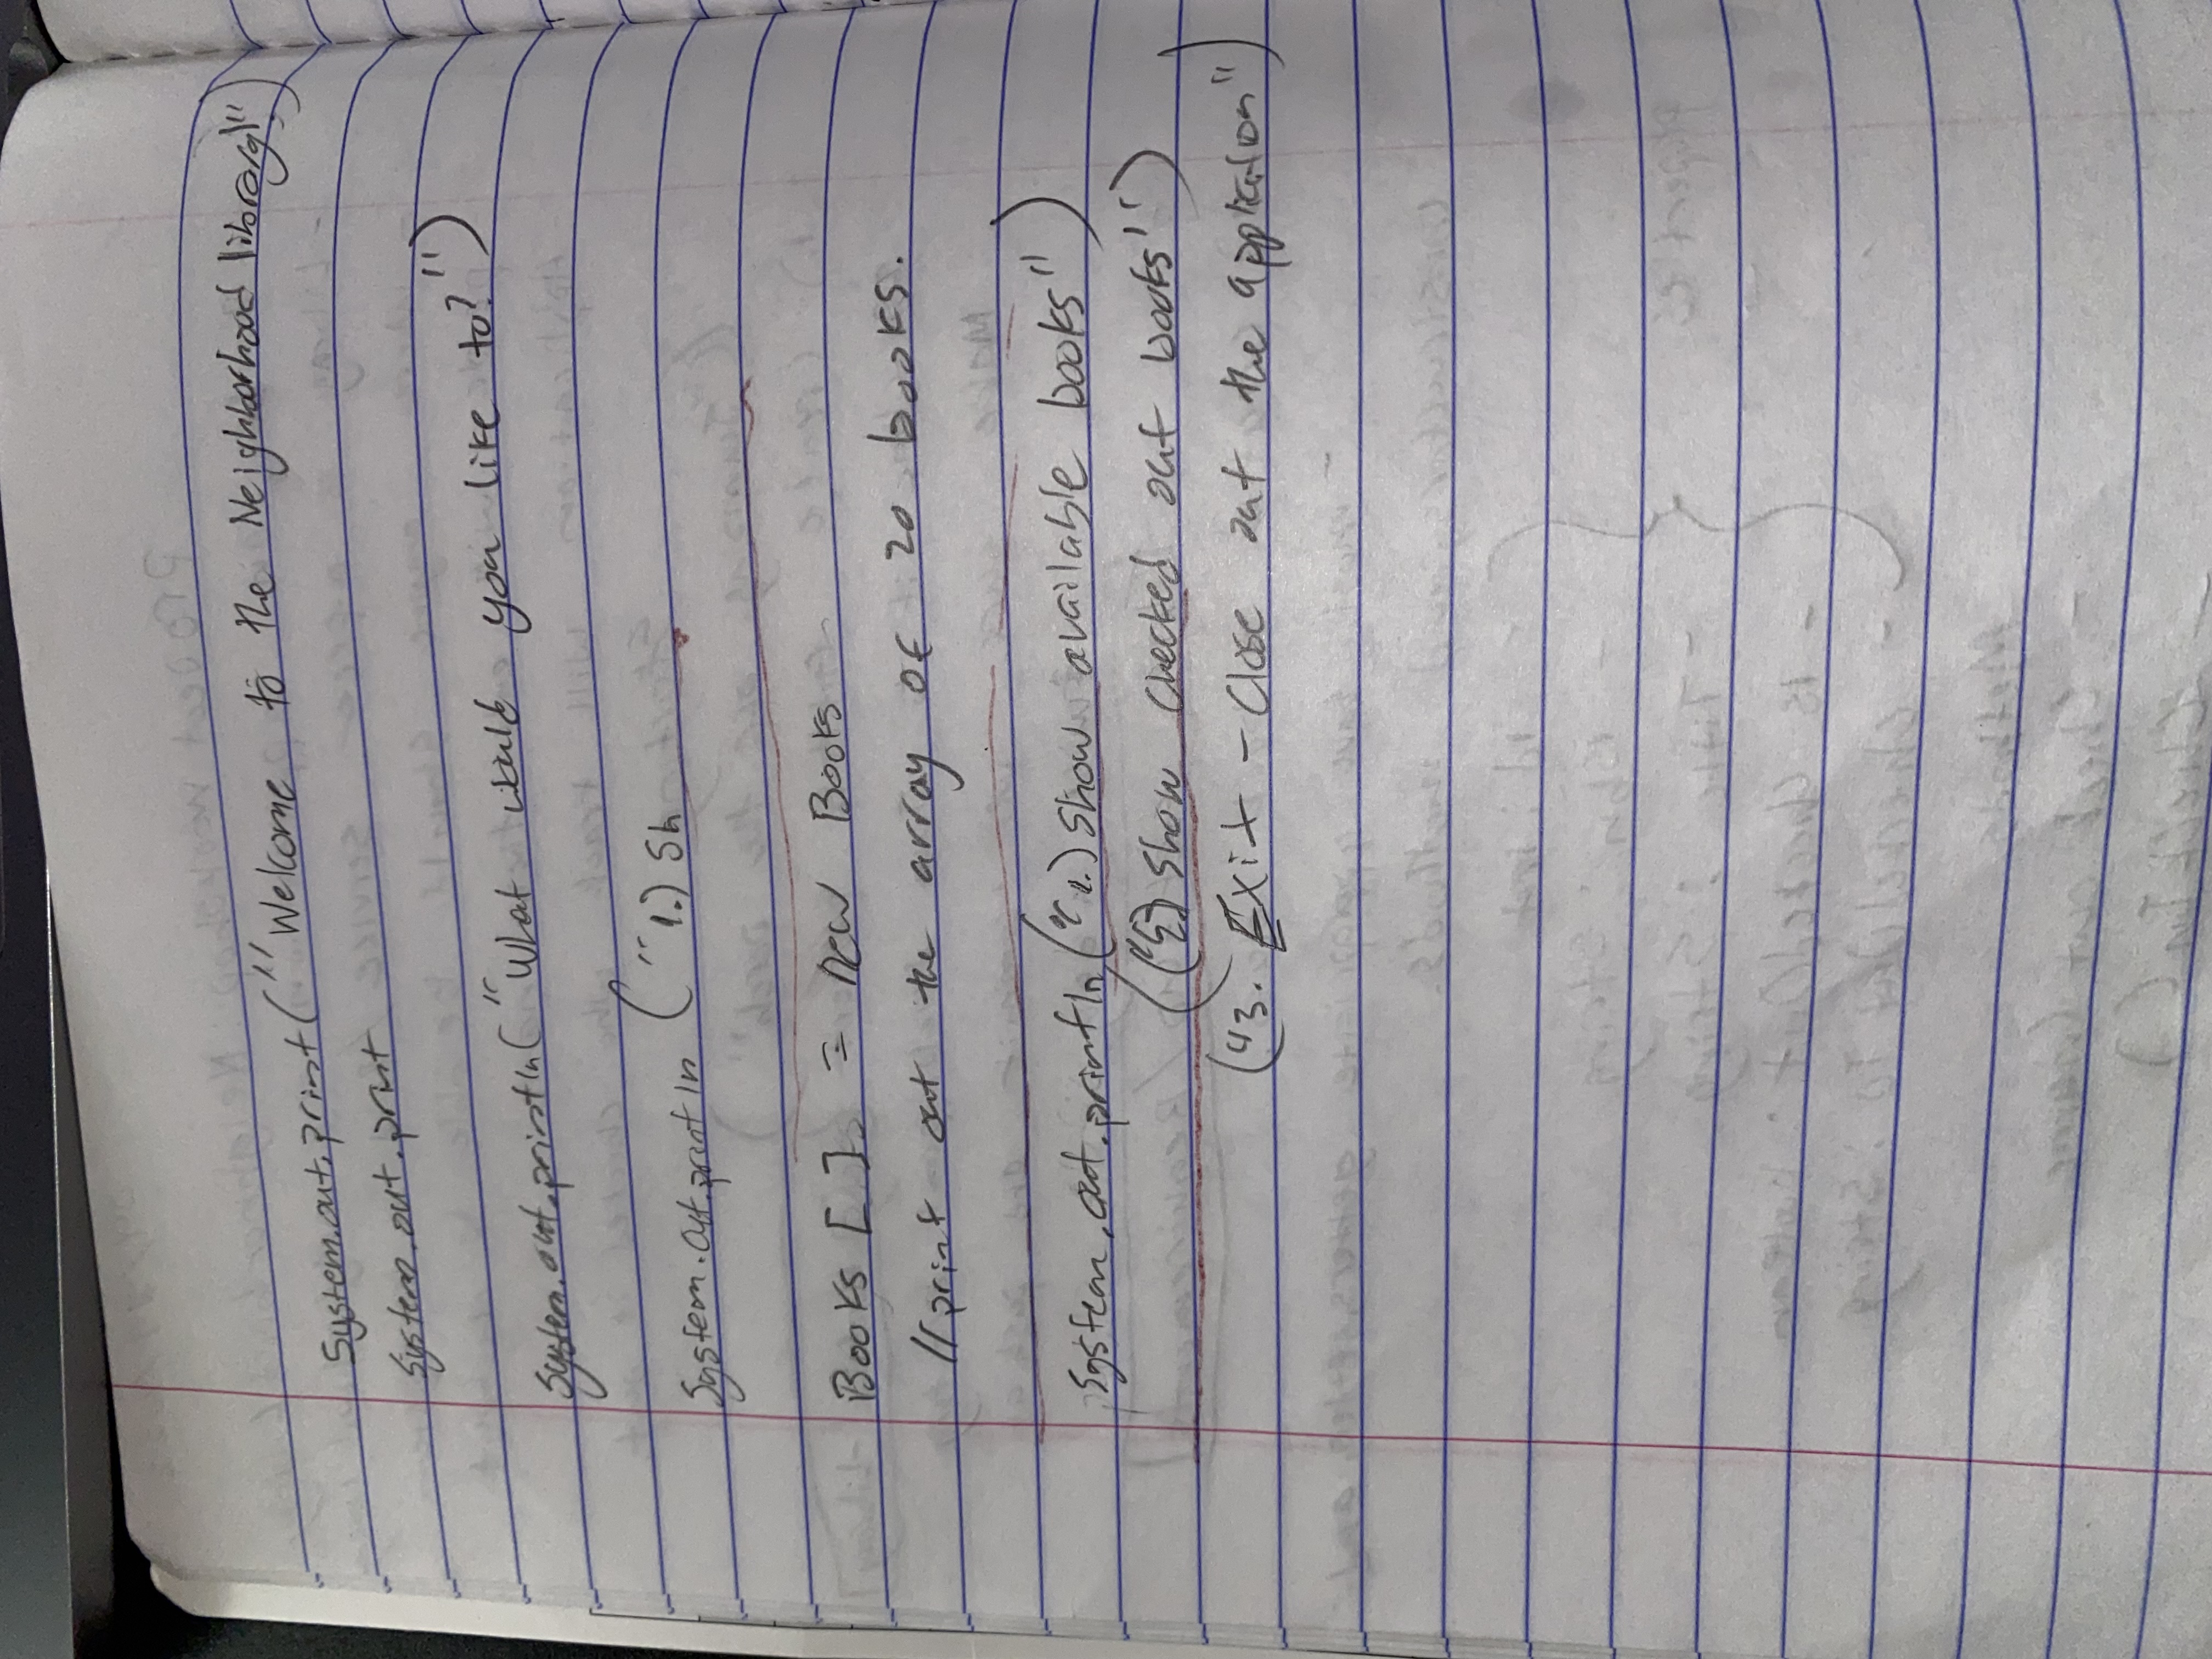 System.out.print("Welcome to the Neighborhood library!")
System.out.print
System.out.println("What would you like to?")
System.out.println ("1.) Sh
Books [ ] = new Books
//print out the array of 20 books.
System.out.println("1.) Show available books")
(("2) Show checked out books")
("3. Exit - Close out the application")